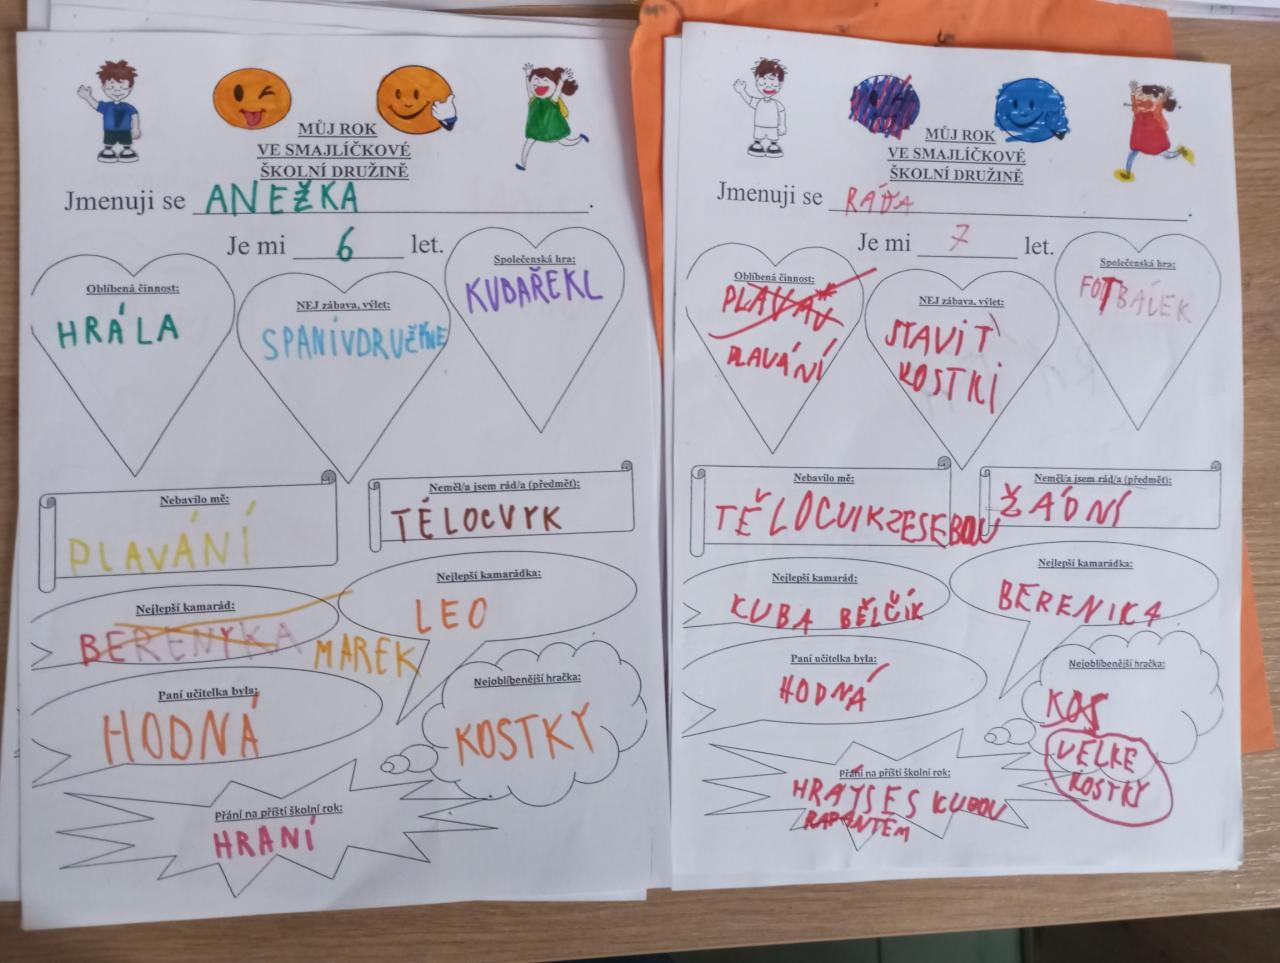 MŮJ ROK
VE SMAJLÍČKOVÉ
ŠKOLNÍ DRUŽINĚ
Jmenuji se ANEŽKA.
Je mi 6 let.
Oblíbená činnost:
HRÁLA
NEJ zábava, výlet:
SPANÍVDRUŽINE
Společenská hra:
KUBAŘEKL
Nebavilo mě:
PLAVÁNÍ
Neměl/a jsem rád/a (předmět):
TĚLOCVYK
Nejlepší kamarád:
BERENYKA
MAREK
Nejlepší kamarádka:
LEO
Paní učitelka byla:
HODNÁ
Nejoblíbenější hračka:
KOSTKY
Přání na příští školní rok:
HRANÍ
MŮJ ROK
VE SMAJLÍČKOVÉ
ŠKOLNÍ DRUŽINĚ
Jmenuji se RÁĎA.
Je mi 7 let.
Oblíbená činnost:
PLAVÁNÍ
NEJ zábava, výlet:
STAVIT
KOSTKI
Společenská hra:
FOTBÁLEK
Nebavilo mě:
TĚLOCVIKZESEBOU
Neměl/a jsem rád/a (předmět):
ŽÁDNÍ
Nejlepší kamarád:
KUBA BĚLČÍK
Nejlepší kamarádka:
BERENIKA
Paní učitelka byla:
HODNÁ
Nejoblíbenější hračka:
KOS
VELKE
KOSTKY
Přání na příští školní rok:
HRÁTSES KUBOU